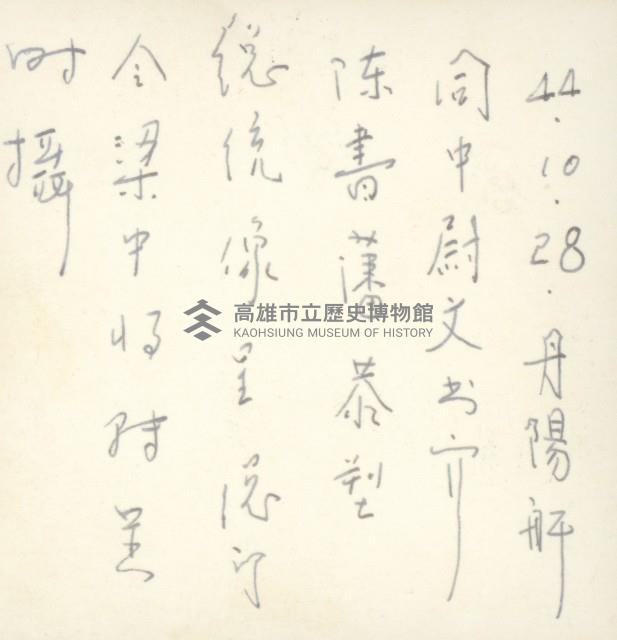 44.10.28.丹陽
中尉文书官
陈書藩恭塑
總統像呈總司
令梁中将
时攝
高雄市立歷史博物館
KAOHSIUNG MUSEUM OF HISTORY